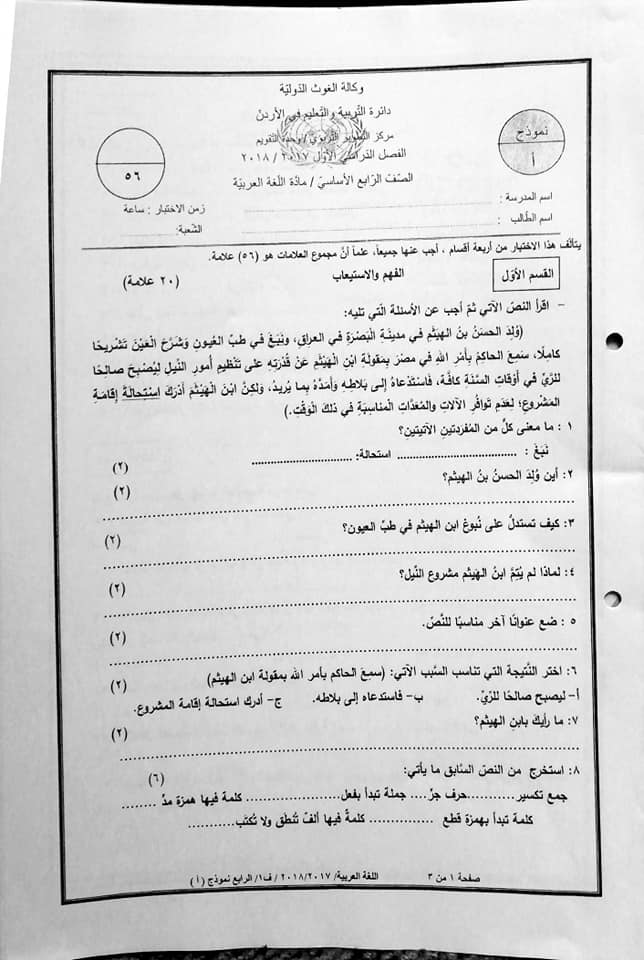 وكالة الغوث الدوليّة
دائرة التربية والتعليم في الأردن
مركز التطوير التربوي / وحدة التقويم
الفصل الدراسي الأول ٢٠١٧ / ٢٠١٨
الصّف الرّابع الأساسيّ / مادّة اللغة العربيّة
نموذج
أ
٥٦
اسم المدرسة :
زمن الاختبار : ساعة
اسم الطّالب :
الشّعبة:
يتألّف هذا الاختبار من أربعة أقسام ، أجب عنها جميعاً، علماً أنّ مجموع العلامات هو (٥٦) علامة.
القسم الأوّل
الفهم والاستيعاب
(٢٠ علامة)
- اقرأ النصّ الآتي ثمّ أجب عن الأسئلة الّتي تليه:
(وُلِدَ الحسَنُ بنُ الهيْثم في مدينة البَصْرَةِ في العراق، ونبَغَ في طبِّ العيُونِ وشَرَّحَ العَيْنَ تَشْريحًا
كاملًا، سمِعَ الحاكم بأمر اللهِ في مصرَ بمقولةِ ابنِ الهَيْثمِ عنْ قُدرَتِهِ على تنْظيمِ أمورِ النّيلِ ليُصبحَ صالحًا
للرَّيِّ في أوْقاتِ السَّنةِ كافَّةً، فاسْتدعاهُ إلى بَلاطِهِ وأمَدَّهُ بِما يُريدُ، ولكنَّ ابنَ الهَيْثَمِ أدْركَ إسْتِحالةَ إقامَةِ
المشْروعِ؛ لِعدَمِ توافُرِ الآلاتِ والمُعدَّاتِ المناسبَةِ في ذلكَ الوَقْتِ.)
١ : ما معنى كلٍّ من المفردتينِ الآتيتينِ؟
نَبَغَ : .................................. استحالة: ............................. (٢)
٢: أين وُلِدَ الحسنُ بنُ الهيثم؟ (٢)
٣: كيف تستدلُّ على نُبوغِ ابن الهيثم في طبِّ العيون؟ (٢)
٤: لماذا لم يُتِمَّ ابنُ الهَيثم مشروع النّيل؟ (٢)
٥ : ضع عنوانًا آخر مناسبًا للنّصّ. (٢)
٦: اختر النّتيجة التي تناسب السّبب الآتي: (سمِعَ الحاكم بأمر الله بمقولة ابن الهيثم) (٢)
أ- ليصبح صالحًا للرّيّ. ب- فاستدعاه إلى بلاطه. ج- أدرك استحالة إقامة المشروع.
٧: ما رأيكَ بابنِ الهيْثم؟ (٢)
٨: استخرج من النصّ السّابق ما يأتي: (٦)
جمع تكسير............حرف جرّ..... جملة تبدأ بفعل.................... كلمة فيها همزة مدّ .......
كلمة تبدأ بهمزة قطع .................. كلمةً فيها ألفٌ تُنطَق ولا تُكتَب............
صفحة ١ من ٣
اللغة العربية/ ٢٠١٧/ ٢٠١٨/ ف١/ الرابع نموذج ( أ )